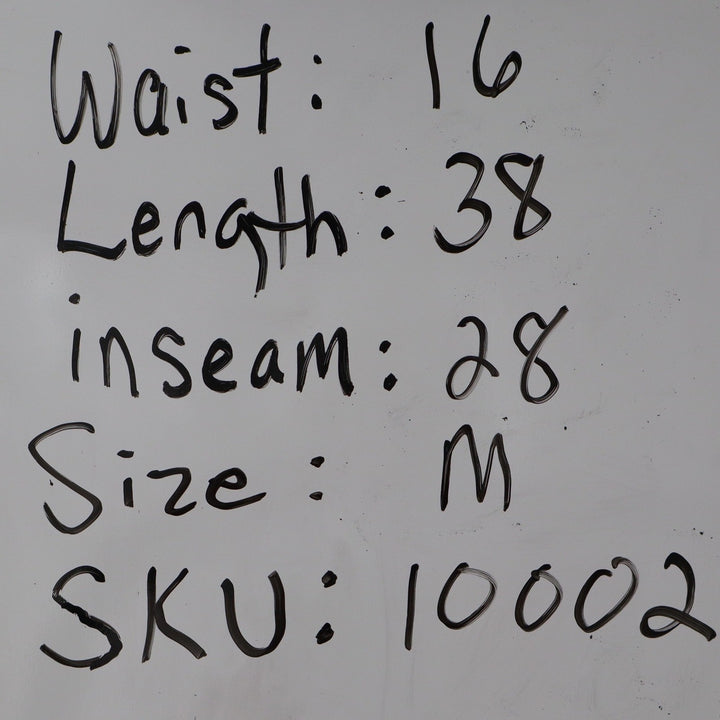 Waist: 16
Length: 38
inseam: 28
Size: M
SKU: 10002